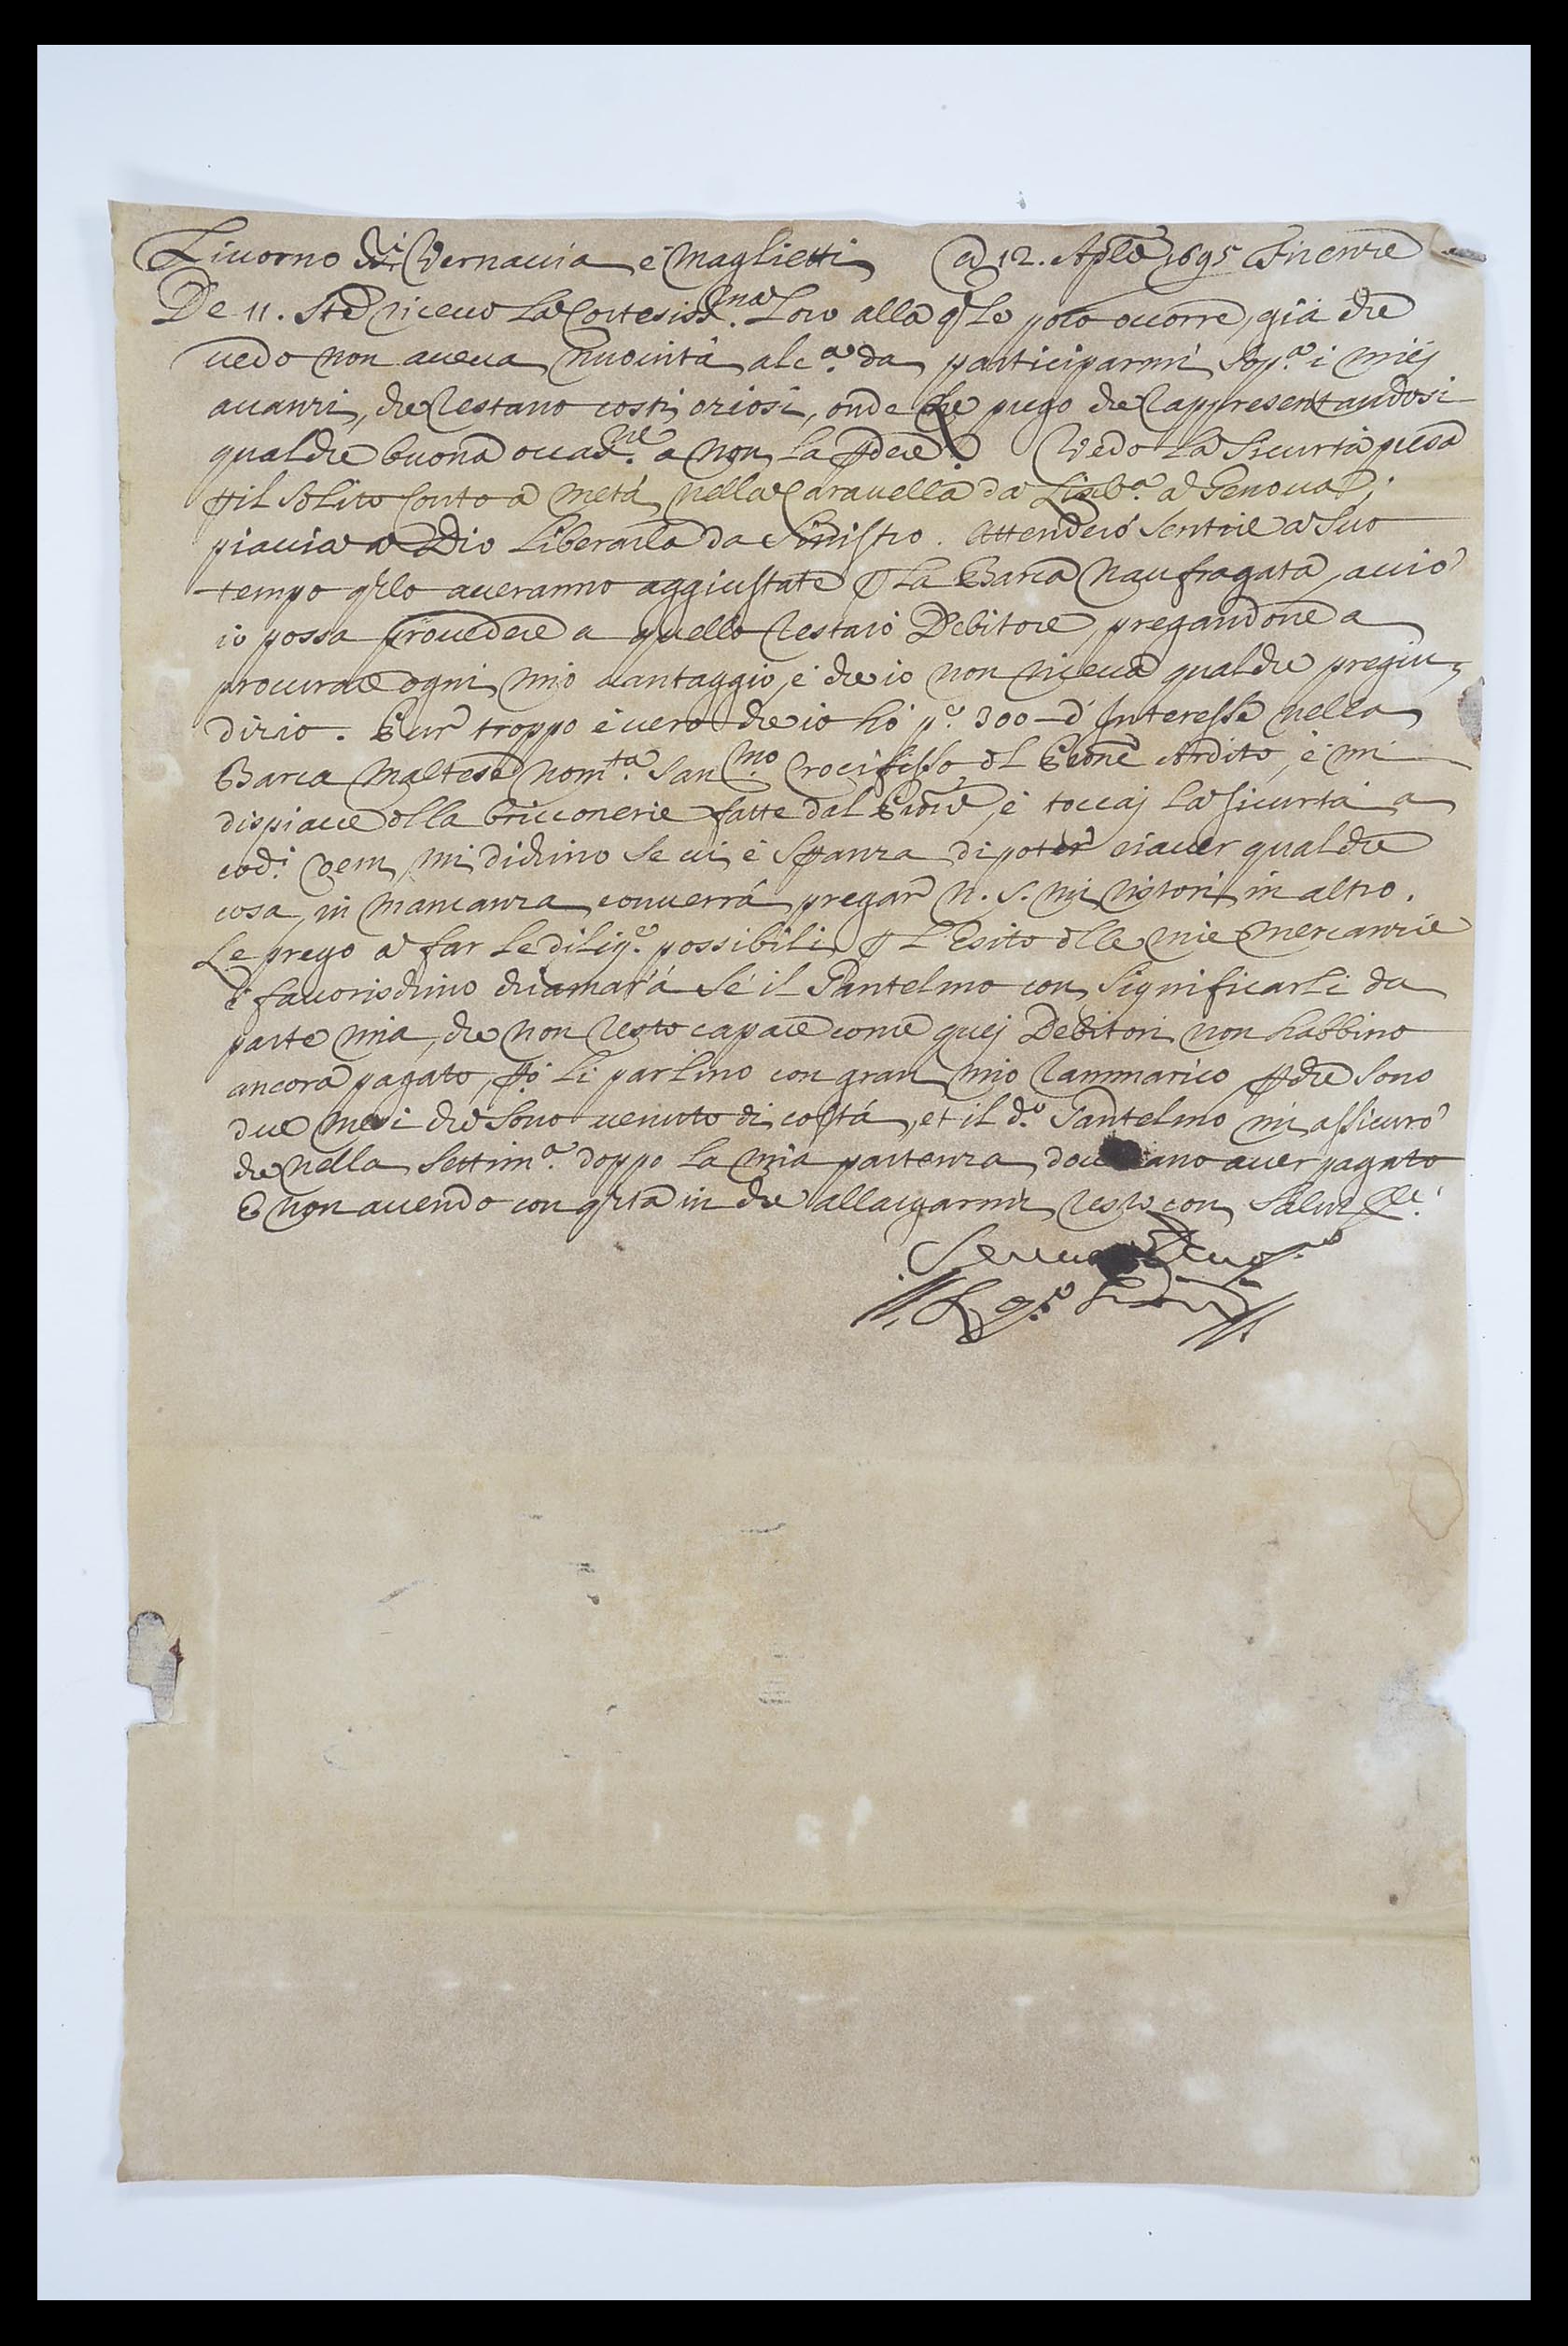 Livorno SSri Vernaccia e Maglietti a 12. Aple 1695 Firenze
De 11. Ste ricevo la Cortesiss.ma Loro alla qle poco occorre, già che
vedo non aveva nuovità alc.a da participarmi sop.a i miej
avanzi, che restano costi oziosi, onde le prego che rappresentandosi
qualche buona occas.ne a non la pdere. Vedo la sicurtà presa
p il solito Conto a metà nella Caravella da Lisb.a a Genova,
piaccia a Dio liberarla da Sinistro. Attenderò sentire a suo
tempo qllo averanno aggiustate p la Barca Naufragata, acciò
io possa provedere a quello restarò Debitore, pregandone a
procurare ogni mio vantaggio, e che io non riceva qualche pregiu-
dizio. Pur troppo è vero che io hò p.e 300 d'Interesse nella
Barca Maltese nom.ta San.mo Crocifisso, el Leone Ardito, e mi
dispiace dlla bricconerie fatte dal Prone, e toccaj la sicurtà a
cod.i mi dichino se vi è spanza di poter riaver qualche
cosa, in mancanza converrà pregar N. S. mi ristori in altro.
Le prego a far le dilig.e possibili p l'Esito dlle mie mercanzie
e favorischino chiamar à sé il Pantelmo con significarli da
parte mia, che non resto capace come quej Debitori non habbino
ancora pagato, pò li parlino con gran mio rammarico pche sono
due mesi che sono venuto di costà, et il d.o Santelmo mi assicurò
che nella settim.a doppo la mia partenza dov ano aver pagato
E non avendo con qsta in che allargarmi resto con salut